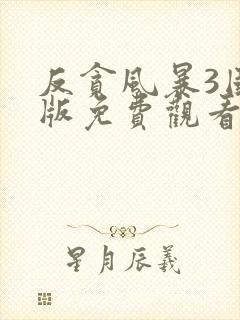 反貪風暴3國
版免費觀看
星月辰羲